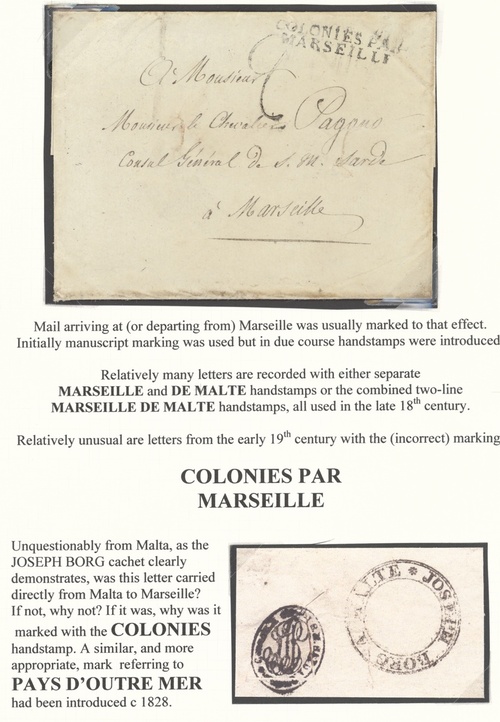 COLONIES PAR
MARSEILLE
A Monsieur
Monsieur le Chevalier Pagano
Consul Général de S. M. Sarde
à Marseille
Mail arriving at (or departing from) Marseille was usually marked to that effect.
Initially manuscript marking was used but in due course handstamps were introduced
Relatively many letters are recorded with either separate
MARSEILLE and DE MALTE handstamps or the combined two-line
MARSEILLE DE MALTE handstamps, all used in the late 18th century.
Relatively unusual are letters from the early 19th century with the (incorrect) marking
COLONIES PAR
MARSEILLE
Unquestionably from Malta, as the
JOSEPH BORG cachet clearly
demonstrates, was this letter carried
directly from Malta to Marseille?
If not, why not? If it was, why was it
marked with the COLONIES
handstamp. A similar, and more
appropriate, mark referring to
PAYS D'OUTRE MER
had been introduced c 1828.
JOSEPH BORG A MALTE